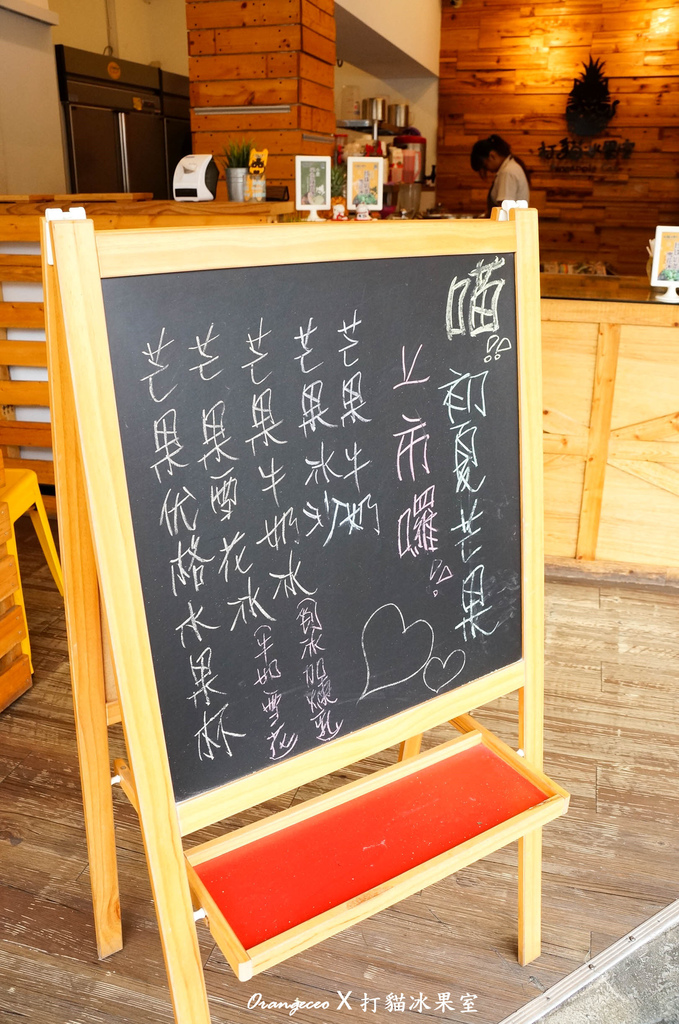 喵!!
初夏芒果
上市囉!!
芒果牛奶
芒果冰沙
芒果牛奶冰(刨冰加煉乳)
芒果雪花冰(牛奶雪花)
芒果优格水果杯
打貓冰果室
Orangeceo X 打貓冰果室